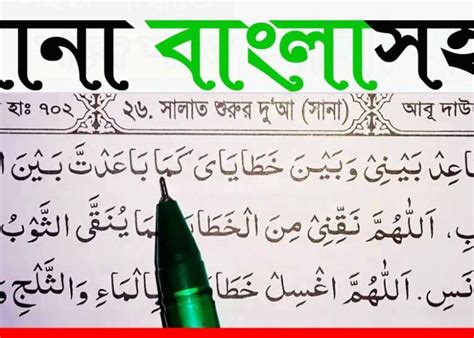 সানা বাংলাসহ
হাঃ ৭০২ ২৬. সালাত শুরুর দু'আ (সানা) আবূ দাউ
اعِدْ بَيْنِىْ وَبَيْنَ خَطَايَاىَ كَمَا بَاعَدْتَّ بَيْنَ
بِ، اَللّٰهُمَّ نَقِّنِىْ مِنَ الْخَطَايَا كَمَا يُنَقَّى الثَّوْبُ
نَسِ. اَللّٰهُمَّ اغْسِلْ خَطَايَاىَ بِالْمَاءِ وَالثَّلْجِ وَ